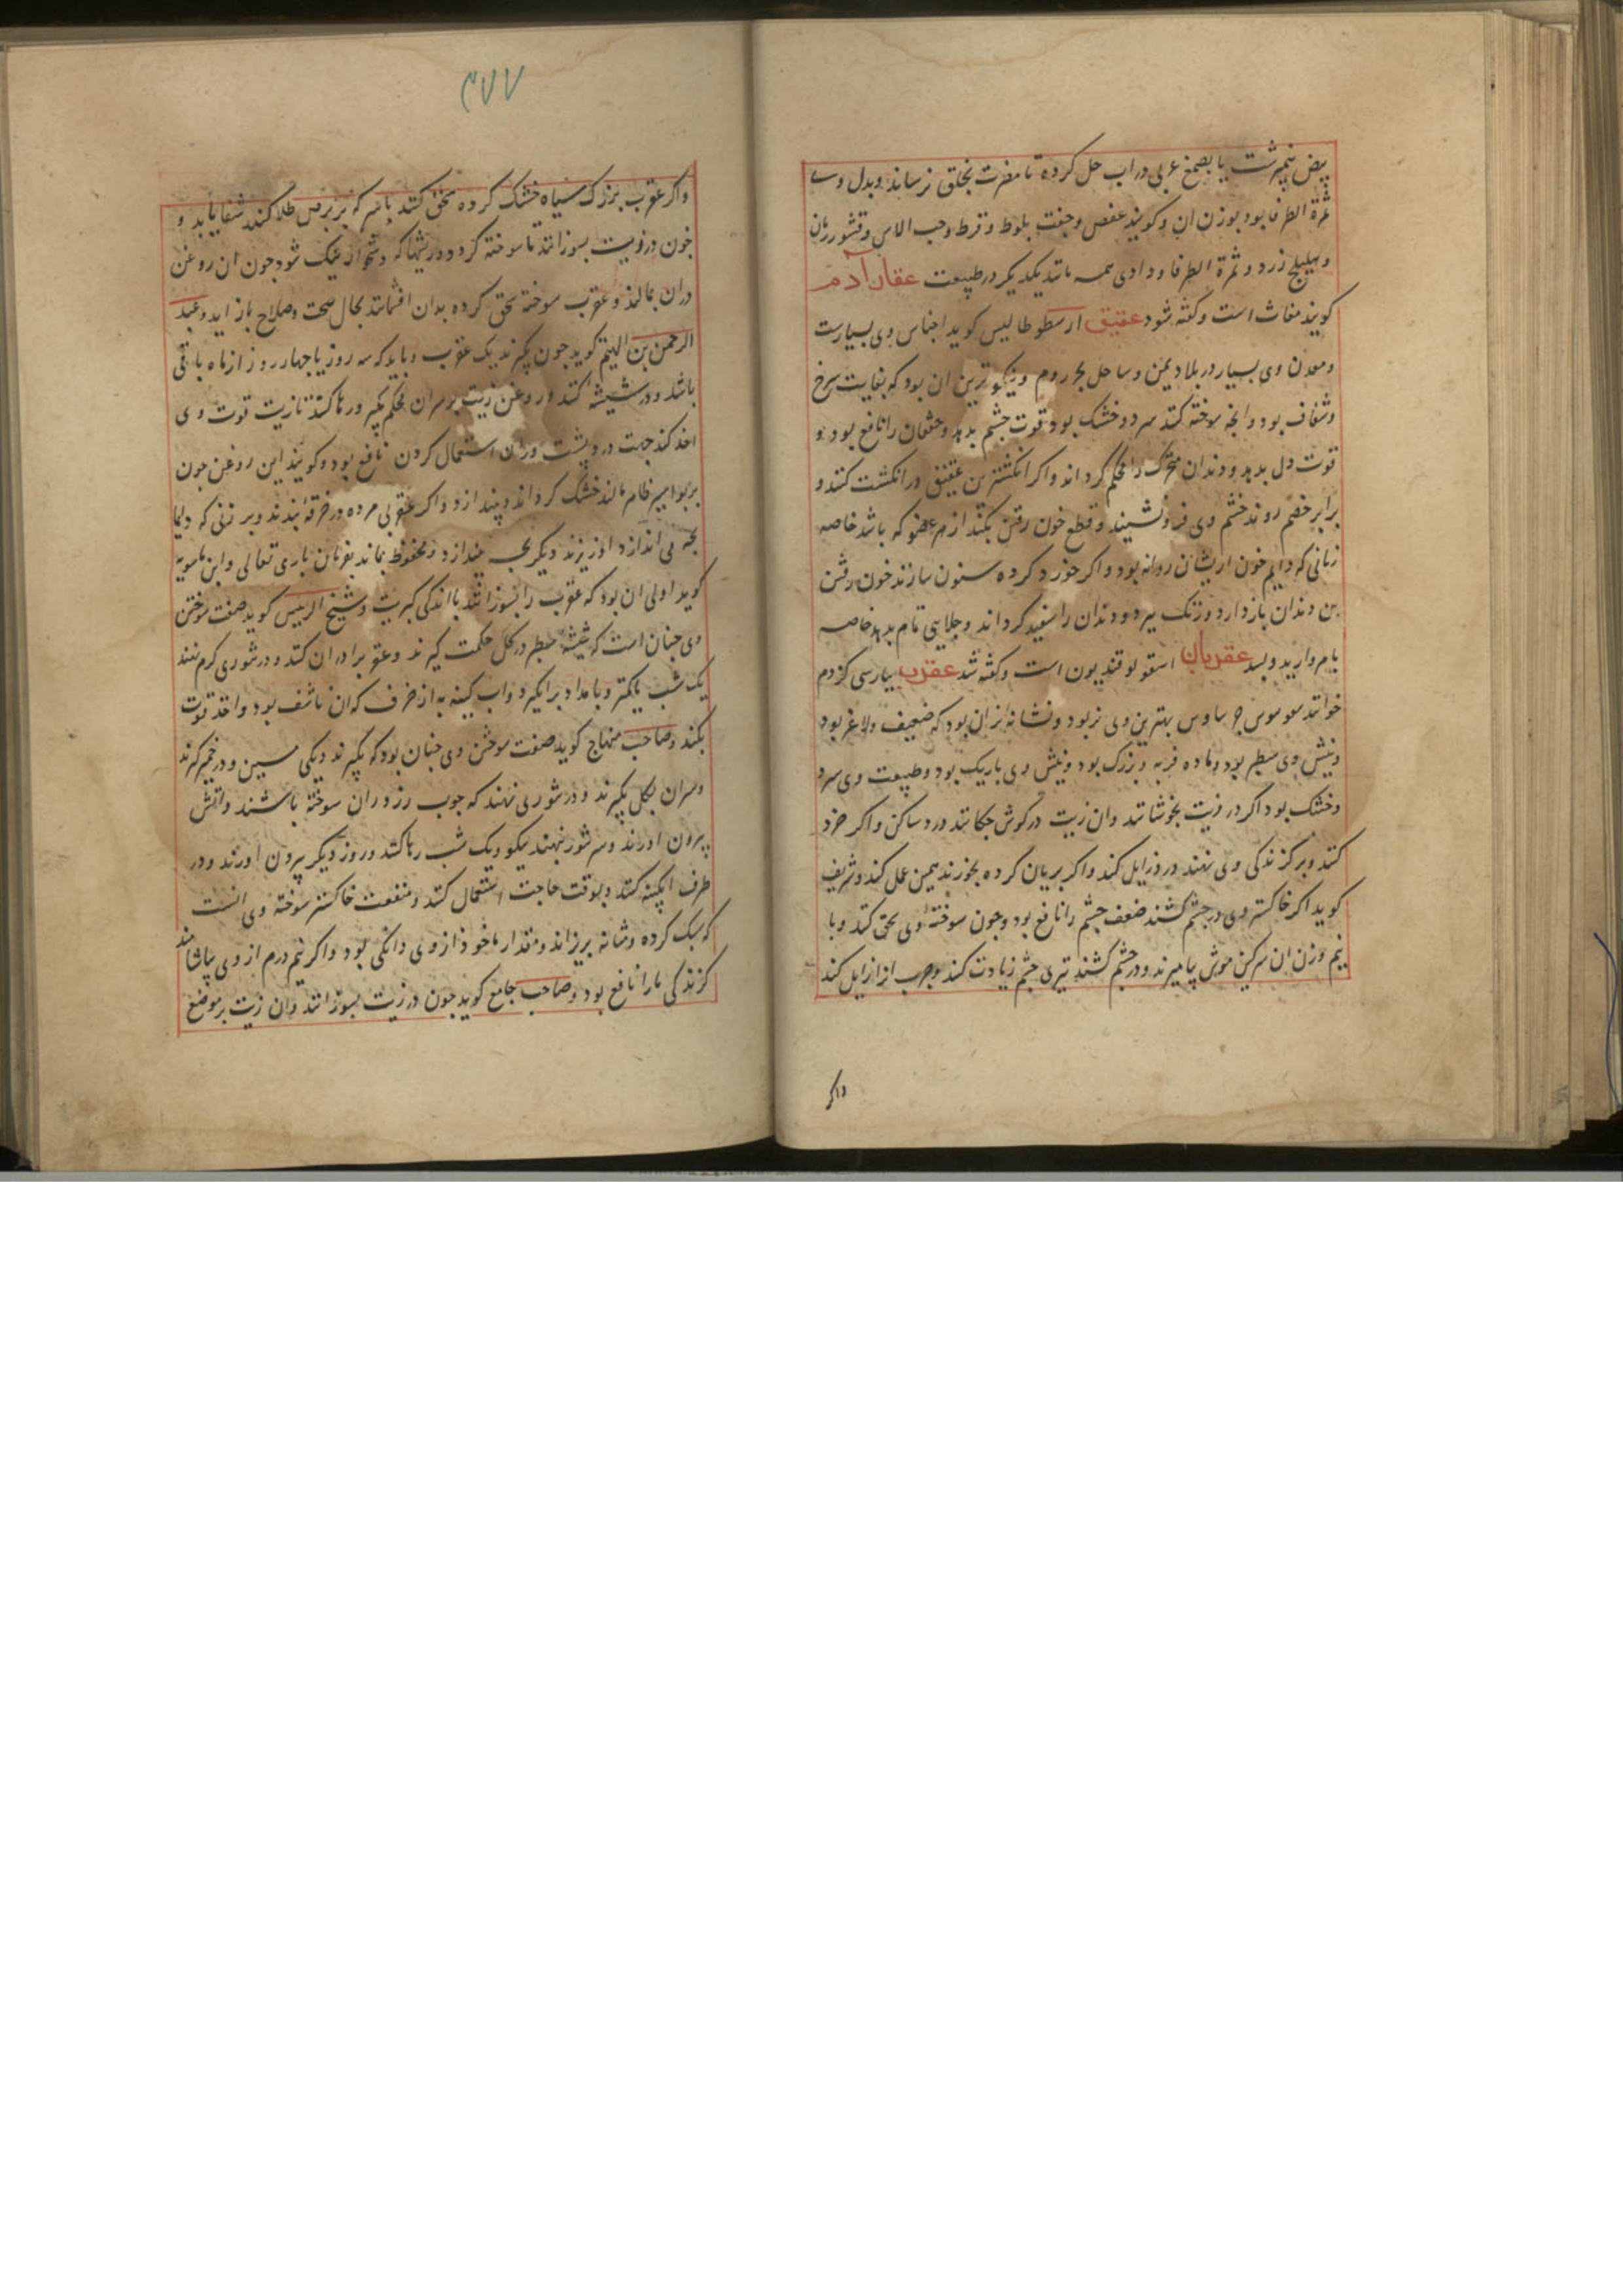 بیض نیمبرشت یا بصمغ عربی در اب حل کرده تا مضرت بحلق نرساند و بدل وی
ثمرة الطرفا بود بوزن ان و کویند عفص و جفت بلوط و قرط و حب الاس و قشور رمان
و هلیلج زرد و ثمرة الطرفا و دادی همه مانند یکدیکر در طبیعت عقار آدم
کویند مغاث است و کفته شود عقیق ارسطوطالیس کوید اجناس وی بسیارست
و معدن وی بسیار در بلاد یمن و ساحل بحر روم و نیکوترین ان بود که بغایت سرخ
و شفاف بود و انچه سوخته کنند سرد و خشک بود قوت چشم بدهد و خفقان را نافع بود و
قوت دل بدهد و دندان متحرک را محکم کرداند و اکر انکشترین عقیق در انکشت کنند و
برابر خصم روند خشم وی فرو نشیند و قطع خون رفتن بکند از هر عضو که باشد خاصه
زنانی که دایم خون ازیشان روانه بود و اکر خورد کرده سنون سازند خون رفتن
بن دندان باز دارد و زنک ببرد و دندان را سفید کرداند و جلایی تام بدهد خاصه
با مروارید و بسد عقربان اسقولوقندریون است و کفته شد عقرب بپارسی کزدم
خوانند بهترین وی نر بود و نشانه نر ان بود که ضعیف و لاغر بود
و نیش وی سطبر بود و ماده فربه و بزرک بود و نیش وی باریک بود و طبیعت وی سرد
و خشک بود اکر در زیت بجوشانند وان زیت در کوش چکانند درد ساکن و اکر خرد
کنند و بر کزندکی وی نهند درد زایل کند و اکر بریان کرده بخورند همین عمل کند و شریف
کوید اکر خاکستر وی در چشم کشند ضعف چشم را نافع بود و چون سوخته وی سحق کنند و با
نیم وزن ان سرکین موش بیامیزند و در چشم کشند تیزی چشم زیادت کند و جرب از زایل کند
واکر
۴۷۷
واکر عقرب بزرک سیاه خشک کرده سحق کنند با سرکه بر برص طلا کنند شفا یابد و
چون در زیت بسوزانند تا سوخته کردد و در ریشهاکه دشخوار نیک شود چون ان روغن
دران بمالند و عقرب سوخته سحق کرده بدان افشانند بحال صحت و صلاح باز اید و عبد
الرحمن بن الهیثم کوید چون بکیرند یک عقرب و باید که سه روز یا چهار روز از ماه باقی
باشد و در شیشه کنند و روغن زیت بر سر ان محکم بکیر و رها کنند تا زیت قوت وی
اخذ کند جهت درد پشت و ران استعمال کردن نافع بود و کویند این روغن چون
بر بواسیر ظاهر مالند خشک کرداند و بیندازد و اکر عقربی مرده در خرقه بندند و بر زنی که دایما
بچه می اندازد اویزند دیکر بچه نیندازد و محفوظ بماند بفرمان باری تعالی و ابن ماسویه
کوید اولی ان بود که عقرب را بسوزانند با اندکی کبریت و شیخ الرییس کوید صفت سوختن
وی چنان است که شیشه سطبر در کل حکمت کیرند و عقرب را دران کنند و در تنوری کرم نهند
یک شب یا کمتر و بامداد برانکیرد واب کینه به از خزف که ان ناشف بود و اخذ قوت
بکند و صاحب منهاج کوید صفت سوختن وی چنان بود که بکیرند دیکی مسین و در خمیر کیرند
و سران بکل بکیرند و در تنوری نهند که چوب رز دران سوخته باشند و اتش
بیرون اورند و سر تنور نهند نیکو و یک شب رها کنند و روز دیکر بیرون اورند و در
ظرف ابکینه کنند و بوقت حاجت استعمال کنند و منفعت خاکستر سوخته وی انست
که سنک کرده و مثانه بریزاند و مقدار ماخوذ از وی دانکی بود و اکر نیم درم از وی بیاشامند
کزندکی مار را نافع بود و صاحب جامع کوید چون در زیت بسوزانند وان زیت بر موضع